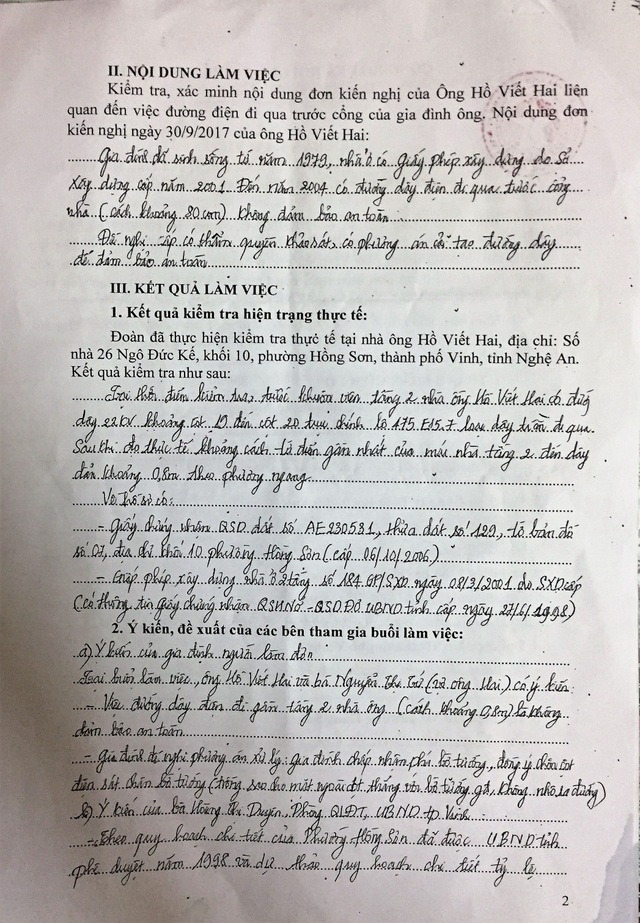 II. NỘI DUNG LÀM VIỆC
Kiểm tra, xác minh nội dung đơn kiến nghị của Ông Hồ Viết Hai liên
quan đến việc đường điện đi qua trước cổng của gia đình ông. Nội dung đơn
kiến nghị ngày 30/9/2017 của ông Hồ Viết Hai:
Gia đình đã sinh sống từ năm 1979, nhà ở có giấy phép xây dựng do Sở
Xây dựng cấp năm 2001. Đến năm 2004 có đường dây điện đi qua trước cổng
nhà (cách khoảng 80cm) không đảm bảo an toàn.
Đề nghị cấp có thẩm quyền khảo sát, có phương án cải tạo đường dây
để đảm bảo an toàn
III. KẾT QUẢ LÀM VIỆC
1. Kết quả kiểm tra hiện trạng thực tế:
Đoàn đã thực hiện kiểm tra thực tế tại nhà ông Hồ Viết Hai, địa chỉ: Số
nhà 26 Ngô Đức Kế, khối 10, phường Hồng Sơn, thành phố Vinh, tỉnh Nghệ An.
Kết quả kiểm tra như sau:
Tại thời điểm kiểm tra, trước khuôn viên tầng 2 nhà ông Hồ Viết Hai có đường
dây 22KV khoảng cột 19 đến cột 20 trục chính lộ 475 E15.7 loại dây trần đi qua.
Sau khi đo thực tế khoảng cách từ điểm gần nhất của mái nhà tầng 2 đến dây
dẫn khoảng 0,8m theo phương ngang.
Về hồ sơ có:
- Giấy chứng nhận QSD đất số AE230581, thửa đất số 129, tờ bản đồ
số 07, địa chỉ khối 10 phường Hồng Sơn (cấp 06/10/2006)
- Giấp phép xây dựng nhà ở 2 tầng số 184 GP/SXD ngày 08/3/2001 do SXD cấp
(có thông tin giấy chứng nhận QSHNỞ - QSDĐỞ UBND tỉnh cấp ngày 27/6/1998)
2. Ý kiến, đề xuất của các bên tham gia buổi làm việc:
a) Ý kiến của gia đình người làm đơn
Tại buổi làm việc, ông Hồ Viết Hai và bà Nguyễn Thị Tứ (vợ ông Hai) có ý kiến:
- Việc đường dây điện đi gần tầng 2 nhà ông (cách khoảng 0,8m) là không
đảm bảo an toàn
- Gia đình đề nghị phương án xử lý: gia đình chấp nhận phá bỏ tường, đồng ý chôn cột
điện sát chân bờ tường (trồng sao cho mặt ngoài cột thẳng với bờ tường gđ, không nhô ra đường)
b) Ý kiến của bà Hoàng Thị Duyên, Phòng QLĐT, UBND tp Vinh:
- Theo quy hoạch chi tiết của Phường Hồng Sơn đã được UBND tỉnh
phê duyệt năm 1998 và dự thảo quy hoạch chi tiết tỷ lệ
2